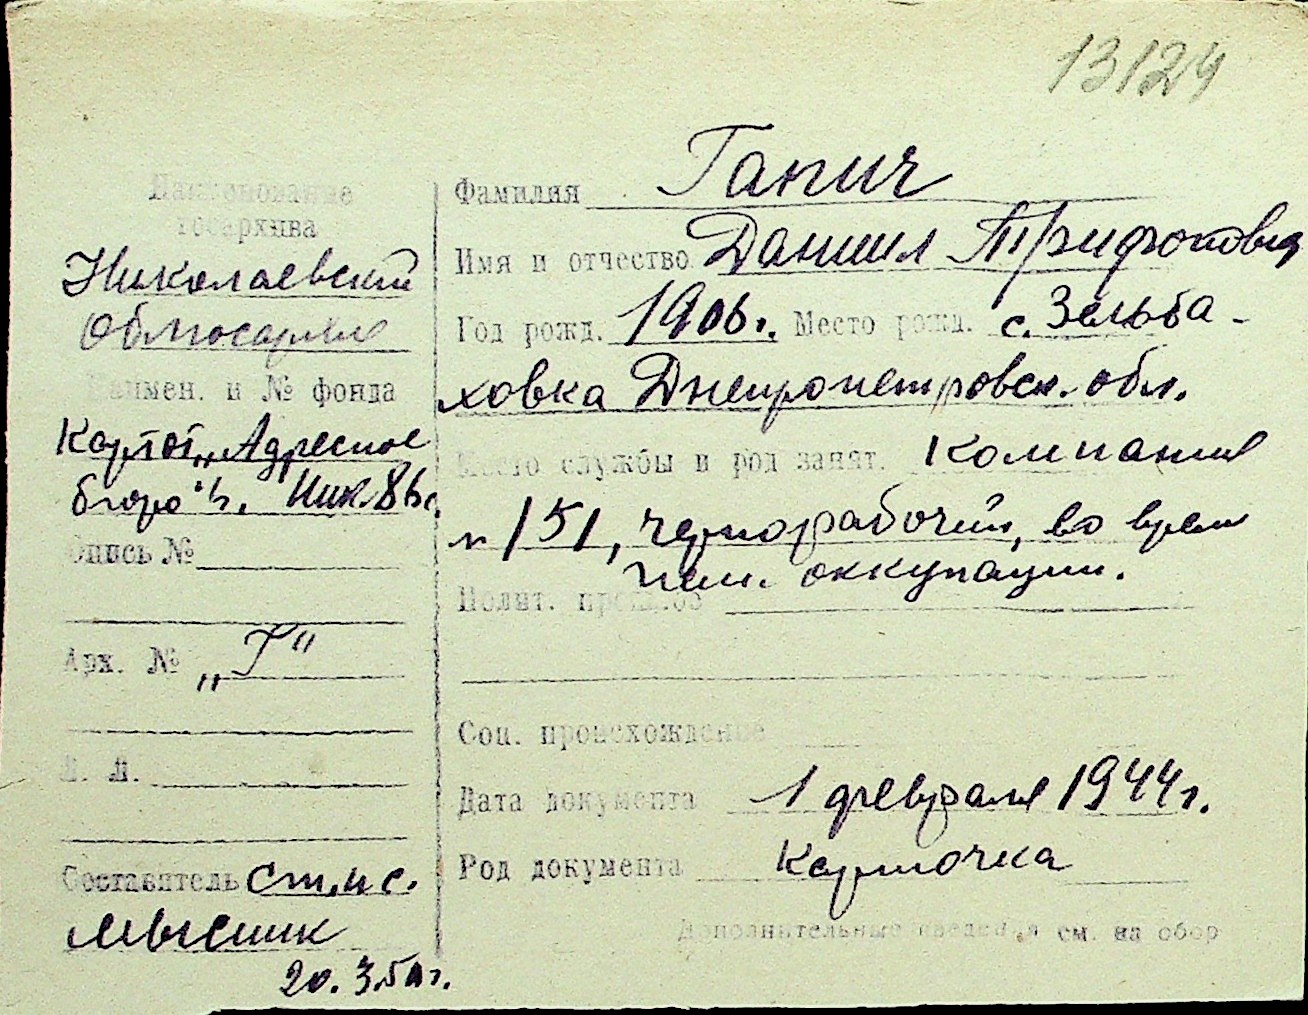 13124
Наименование
госархива
Николаевский
Облгосархив
Наимен. и № фонда
Картот. „Адресное
бюро" г. Ник.
Опись №
Арх. № „Г"
Л. Л.
Составитель ст. н. с.
Мысник
20.3.50 г.
Фамилия Ганич
Имя и отчество Даниил Трифонович
Год рожд. 1906 г. Место рожд. с.
ховка Днепропетровск. обл.
Место службы и род занят. Компания
№ 151, чернорабочий, во время
нем. оккупации.
Полит.
Соц. происхождение
Дата документа 1 февраля 1944 г.
Род документа карточка
Дополнительные сведения см. на обор